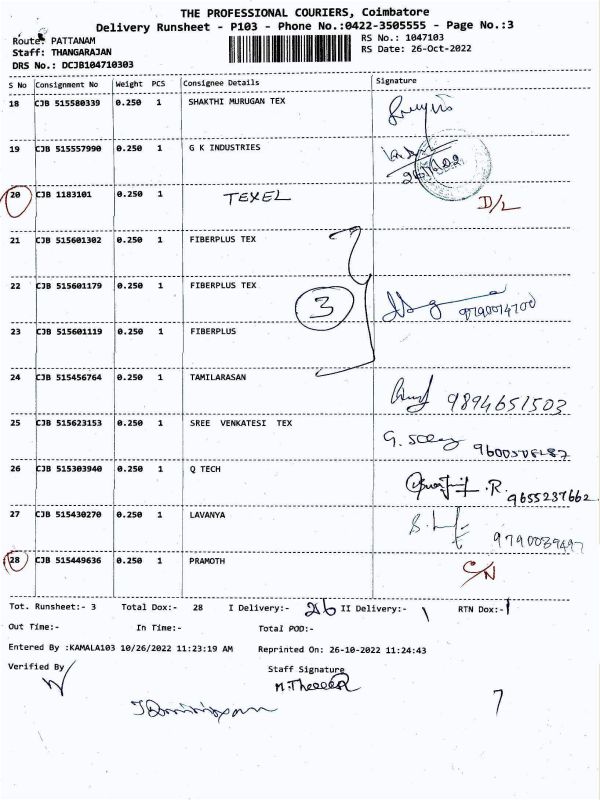 THE PROFESSIONAL COURIERS, Coimbatore
Delivery Runsheet - P103 - Phone No.:0422-3505555 - Page No.:3
Route: PATTANAM
RS No.: 1047103
Staff: THANGARAJAN
RS Date: 26-Oct-2022
DRS No.: DCJB104710303
S No Consignment No Weight PCS Consignee Details Signature
18 CJB 515580339 0.250 1 SHAKTHI MURUGAN TEX
19 CJB 515557990 0.250 1 G K INDUSTRIES
20 CJB 1183101 0.250 1 TEXEL D/L
21 CJB 515601302 0.250 1 FIBERPLUS TEX
22 CJB 515601179 0.250 1 FIBERPLUS TEX 3
23 CJB 515601119 0.250 1 FIBERPLUS
24 CJB 515456764 0.250 1 TAMILARASAN 9894651503
25 CJB 515623153 0.250 1 SREE VENKATESI TEX
26 CJB 515303940 0.250 1 Q TECH 9655237662
27 CJB 515430270 0.250 1 LAVANYA
28 CJB 515449636 0.250 1 PRAMOTH C/N
Tot. Runsheet:- 3 Total Dox:- 28 I Delivery:- 26 II Delivery:- 1 RTN Dox:- 1
Out Time:- In Time:- Total POD:-
Entered By :KAMALA103 10/26/2022 11:23:19 AM Reprinted On: 26-10-2022 11:24:43
Verified By Staff Signature
7